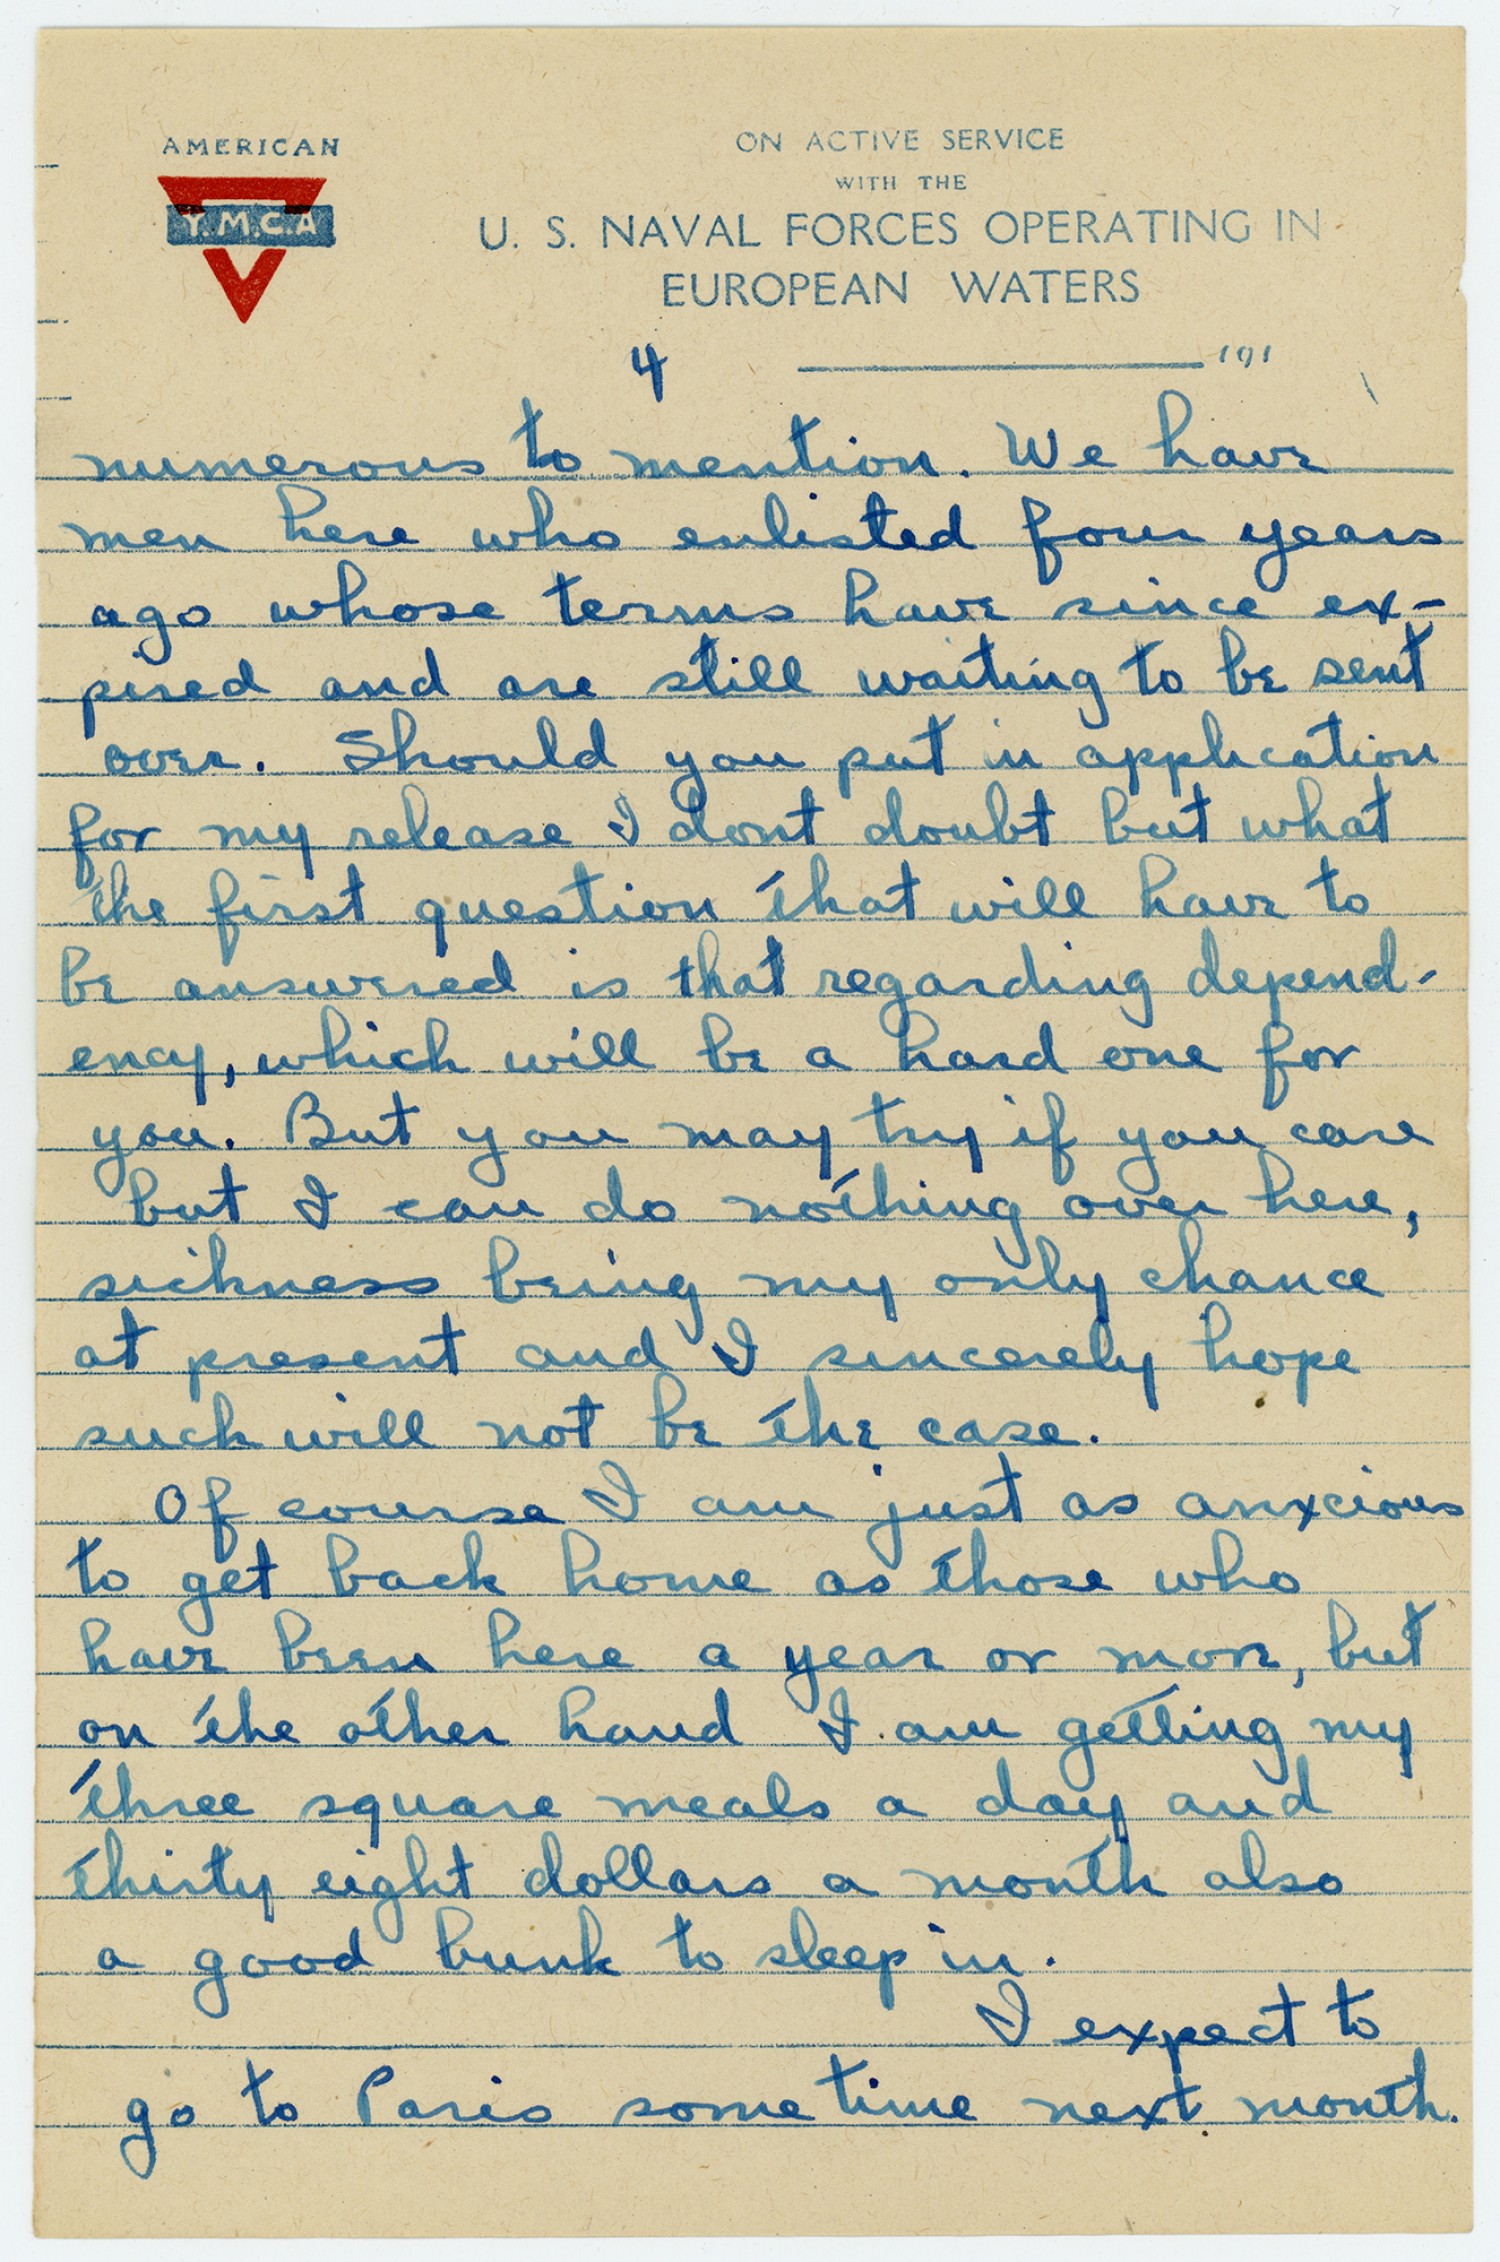 AMERICAN
Y.M.C.A
ON ACTIVE SERVICE
WITH THE
U. S. NAVAL FORCES OPERATING IN
EUROPEAN WATERS
4 191
numerous to mention. We have
men here who enlisted four years
ago whose terms have since ex-
pired and are still waiting to be sent
over. Should you put in application
for my release I dont doubt but what
the first question that will have to
be answered is that regarding depend-
ency, which will be a hard one for
you. But you may try if you care
but I can do nothing over here,
sickness being my only chance
at present and I sincerely hope
such will not be the case.
Of course I am just as anxcious
to get back home as those who
have been here a year or more, but
on the other hand I am getting my
three square meals a day and
thirty eight dollars a month also
a good bunk to sleep in.
I expect to
go to Paris some time next month.